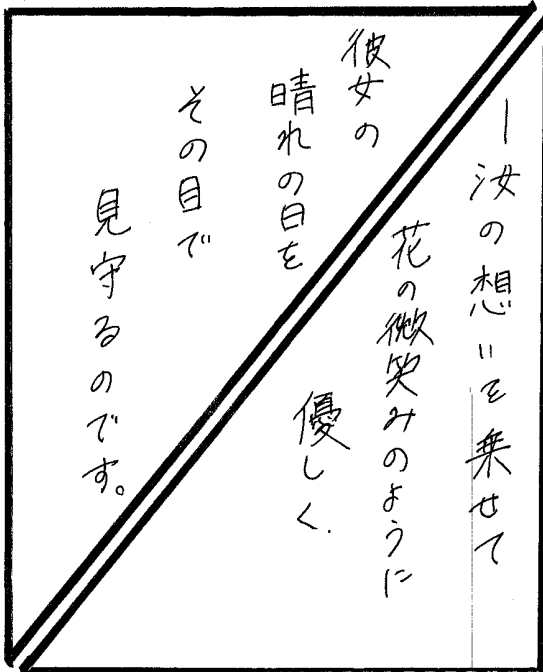 ―汝の想いを乗せて
花の微笑みのように
優しく.
彼女の
晴れの日を
その目で
見守るのです。